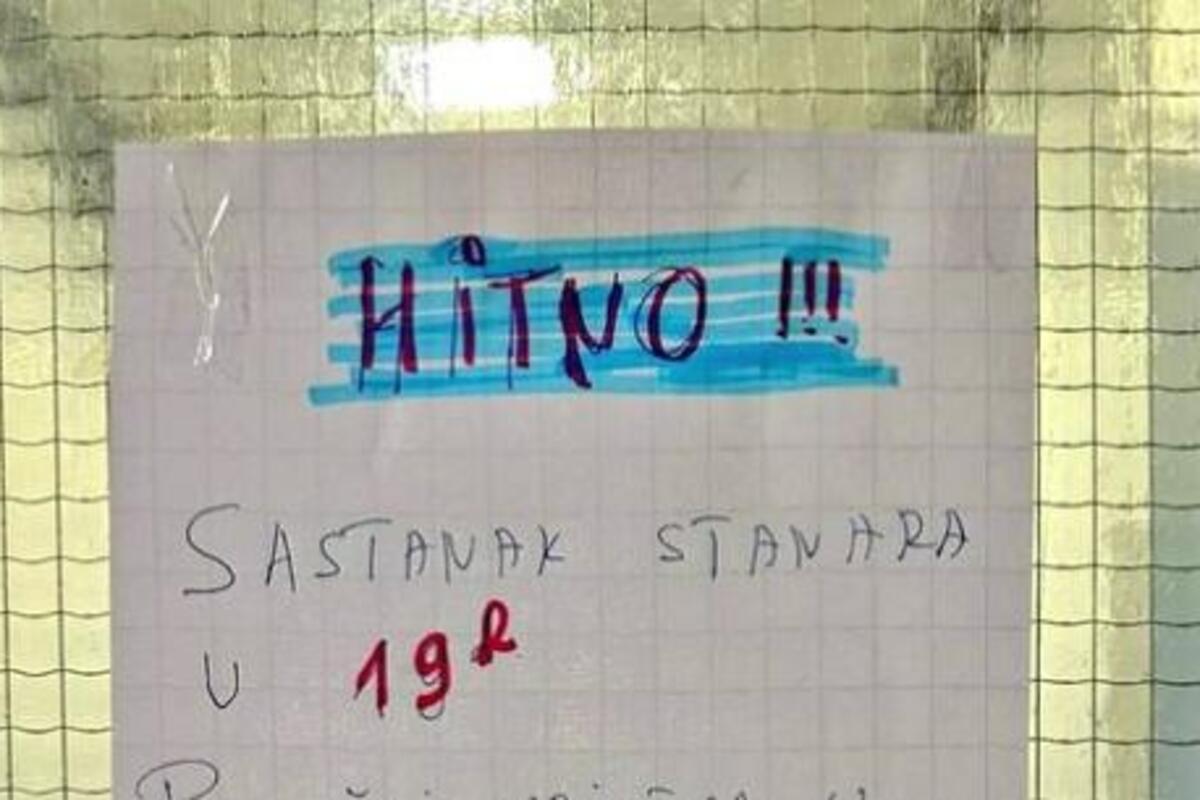 HiTNO !!!
SASTANAK STANARA
U 19h